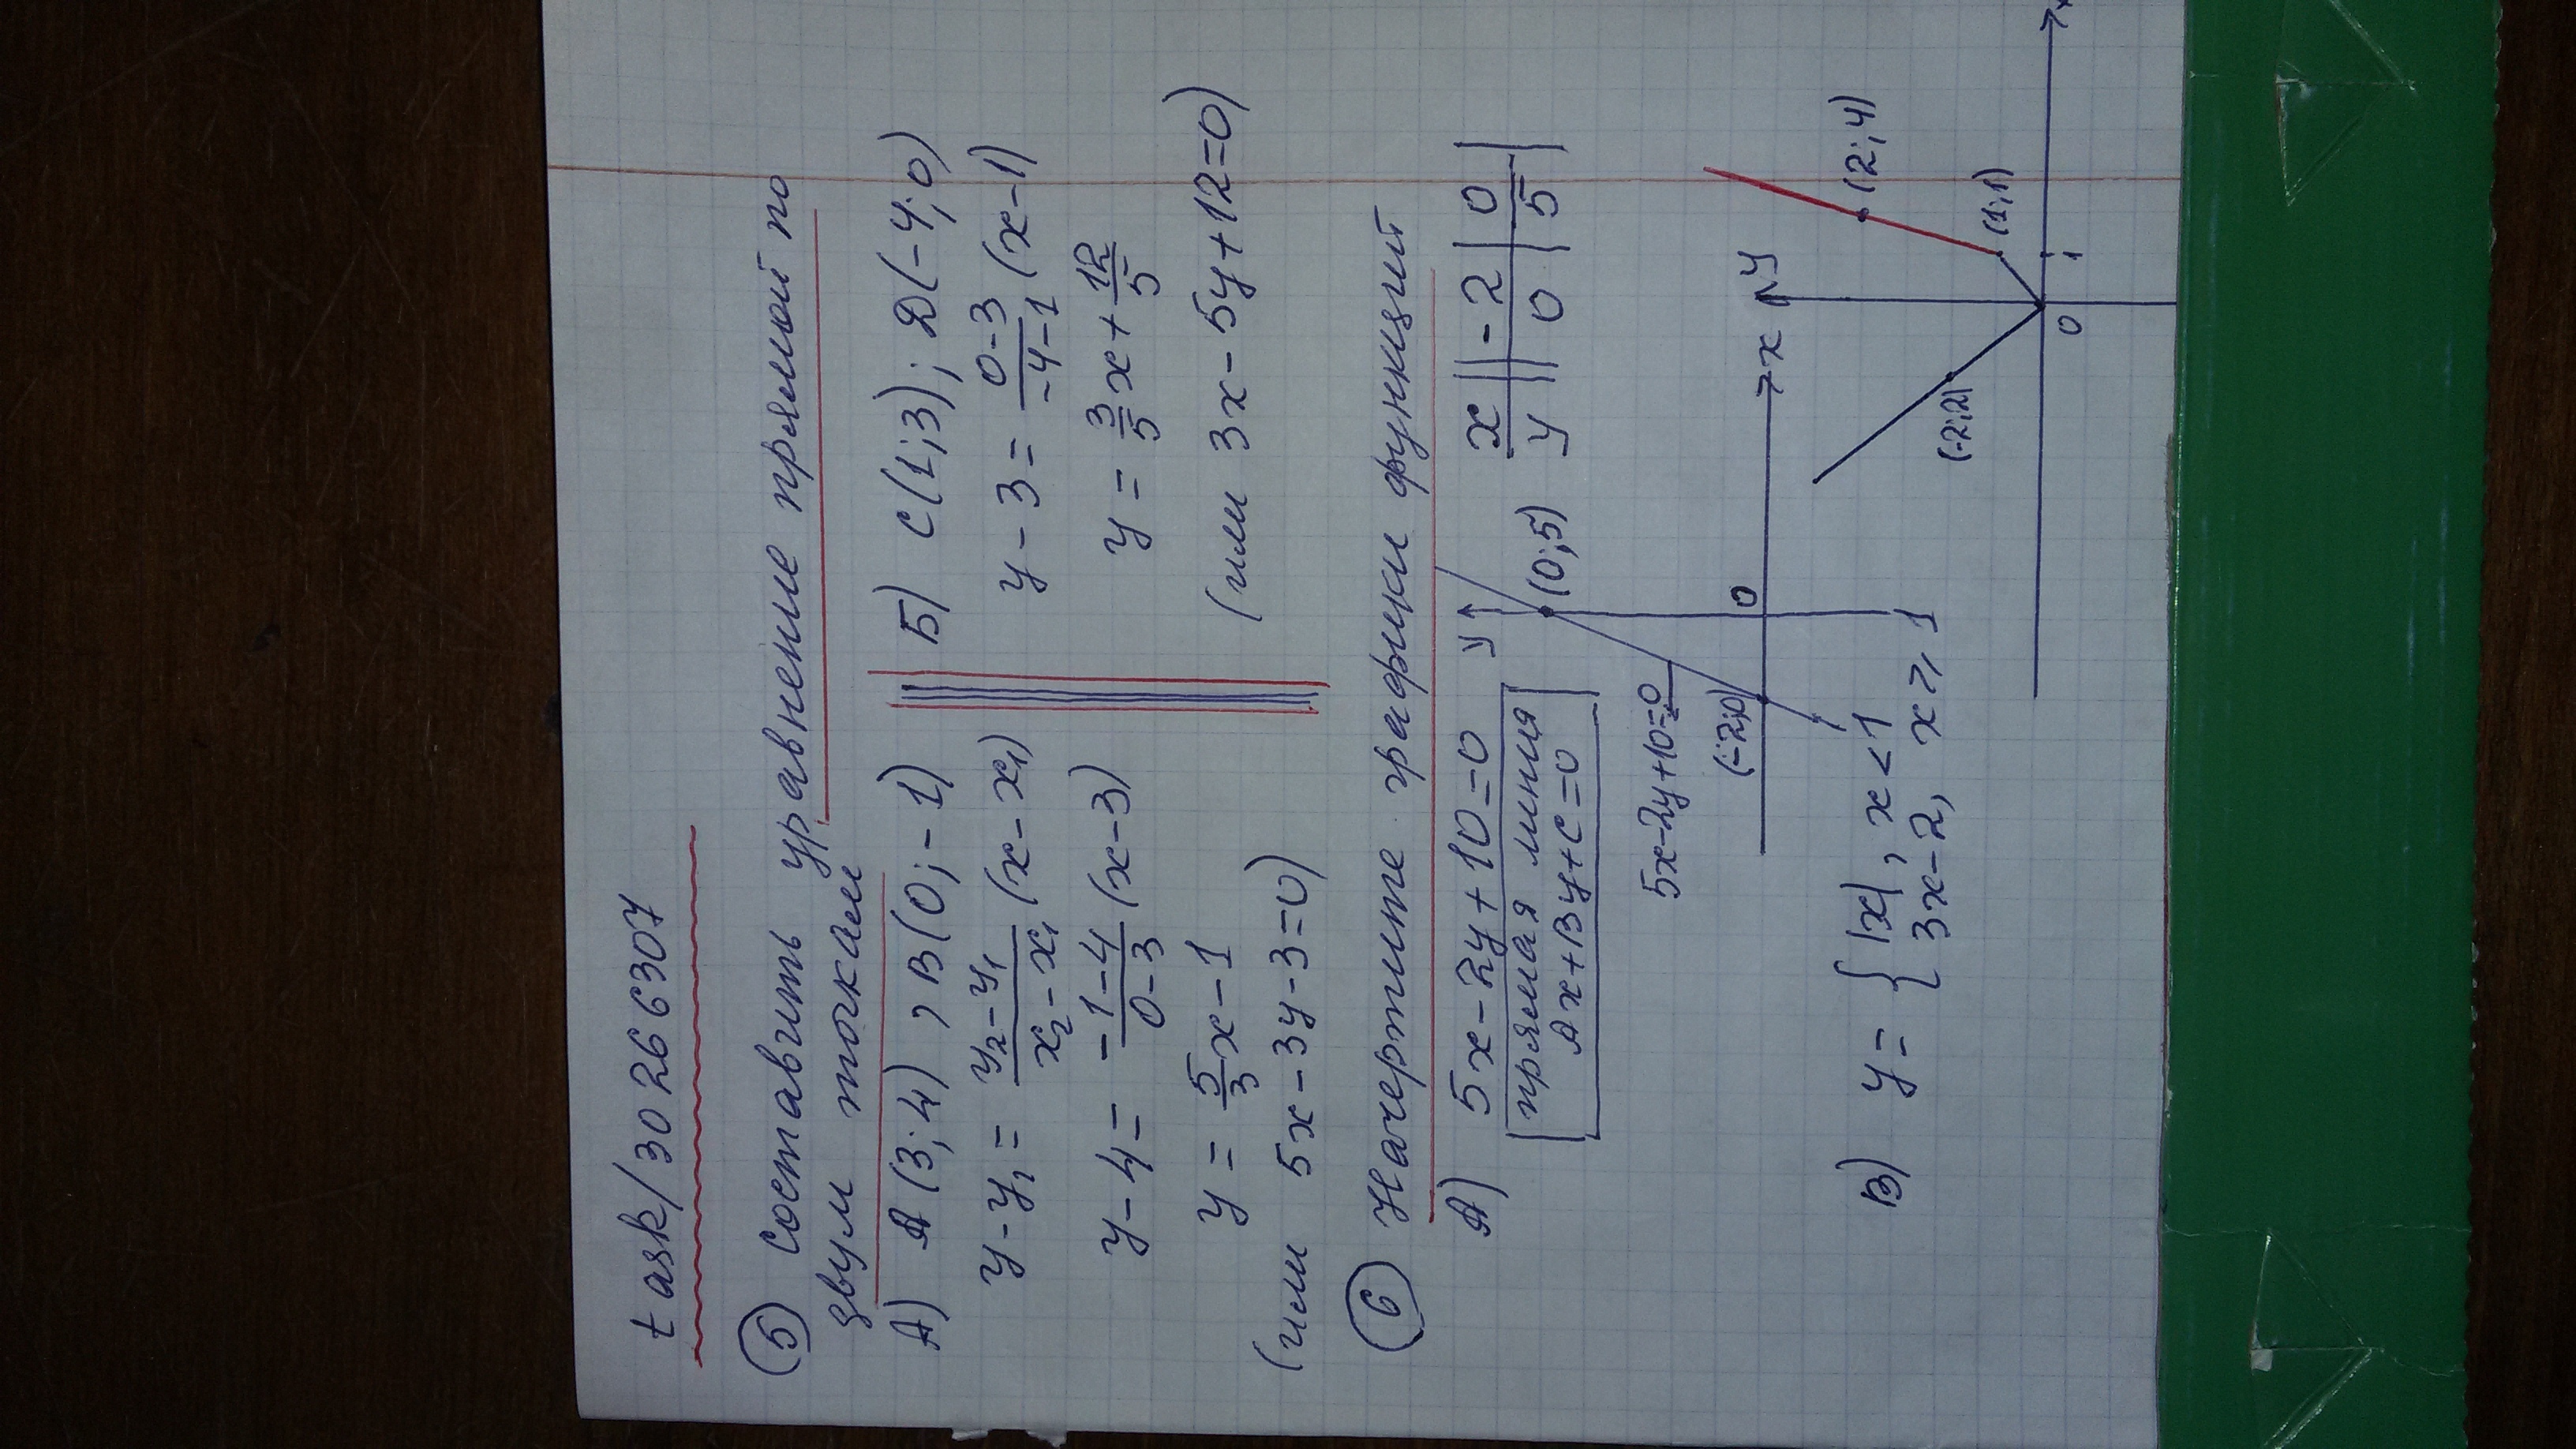 task/30266307
5 Составить уравнение прямой по
двум точкам
А) А(3;4), В(0;-1)
y-y₁ = (y₂-y₁)/(x₂-x₁) (x-x₁)
y-4 = (-1-4)/(0-3) (x-3)
y = 5/3 x-1
(или 5x-3y-3=0)
Б) С(1;3); Д(-4;0)
y-3 = (0-3)/(-4-1) (x-1)
y = 3/5 x + 12/5
(или 3x-5y+12=0)
6 Начертите графики функций
А) 5x-2y+10=0
прямая линия
Ax+By+C=0
x || -2 | 0
y || 0 | 5
y
(0;5)
5x-2y+10=0
(-2;0)
0
x
В) y = { |x|, x<1
3x-2, x⩾1
y
(2;4)
(1;1)
(-2;2)
0
1
x